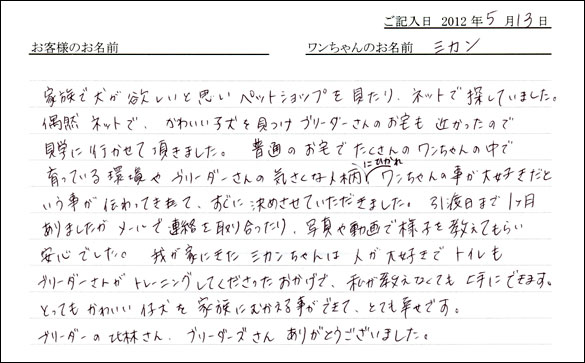 ご記入日 2012年5月13日
お客様のお名前 ワンちゃんのお名前 ミカン
家族で犬が欲しいと思いペットショップを見たり、ネットで探していました。
偶然ネットで、かわいい子犬を見つけブリーダーさんのお宅も近かったので
見学に行かせて頂きました。普通のお宅でたくさんのワンちゃんの中で
育っている環境やブリーダーさんの気さくな人柄にひかれ ワンちゃんの事が大好きだと
いう事が伝わってきれて、すぐに決めさせていただきました。引渡日まで1ヶ月
ありましたがメールで連絡を取り合ったり、写真や動画で様子を教えてもらい
安心でした。我が家にきたミカンちゃんは人が大好きでトイレも
ブリーダーさんがトレーニングしてくださったおかげで、私が教えなくても上手にできます。
とってもかわいい仔犬を家族にむかえる事ができて、とても幸せです。
ブリーダーの比林さん、ブリーダーズさんありがとうございました。